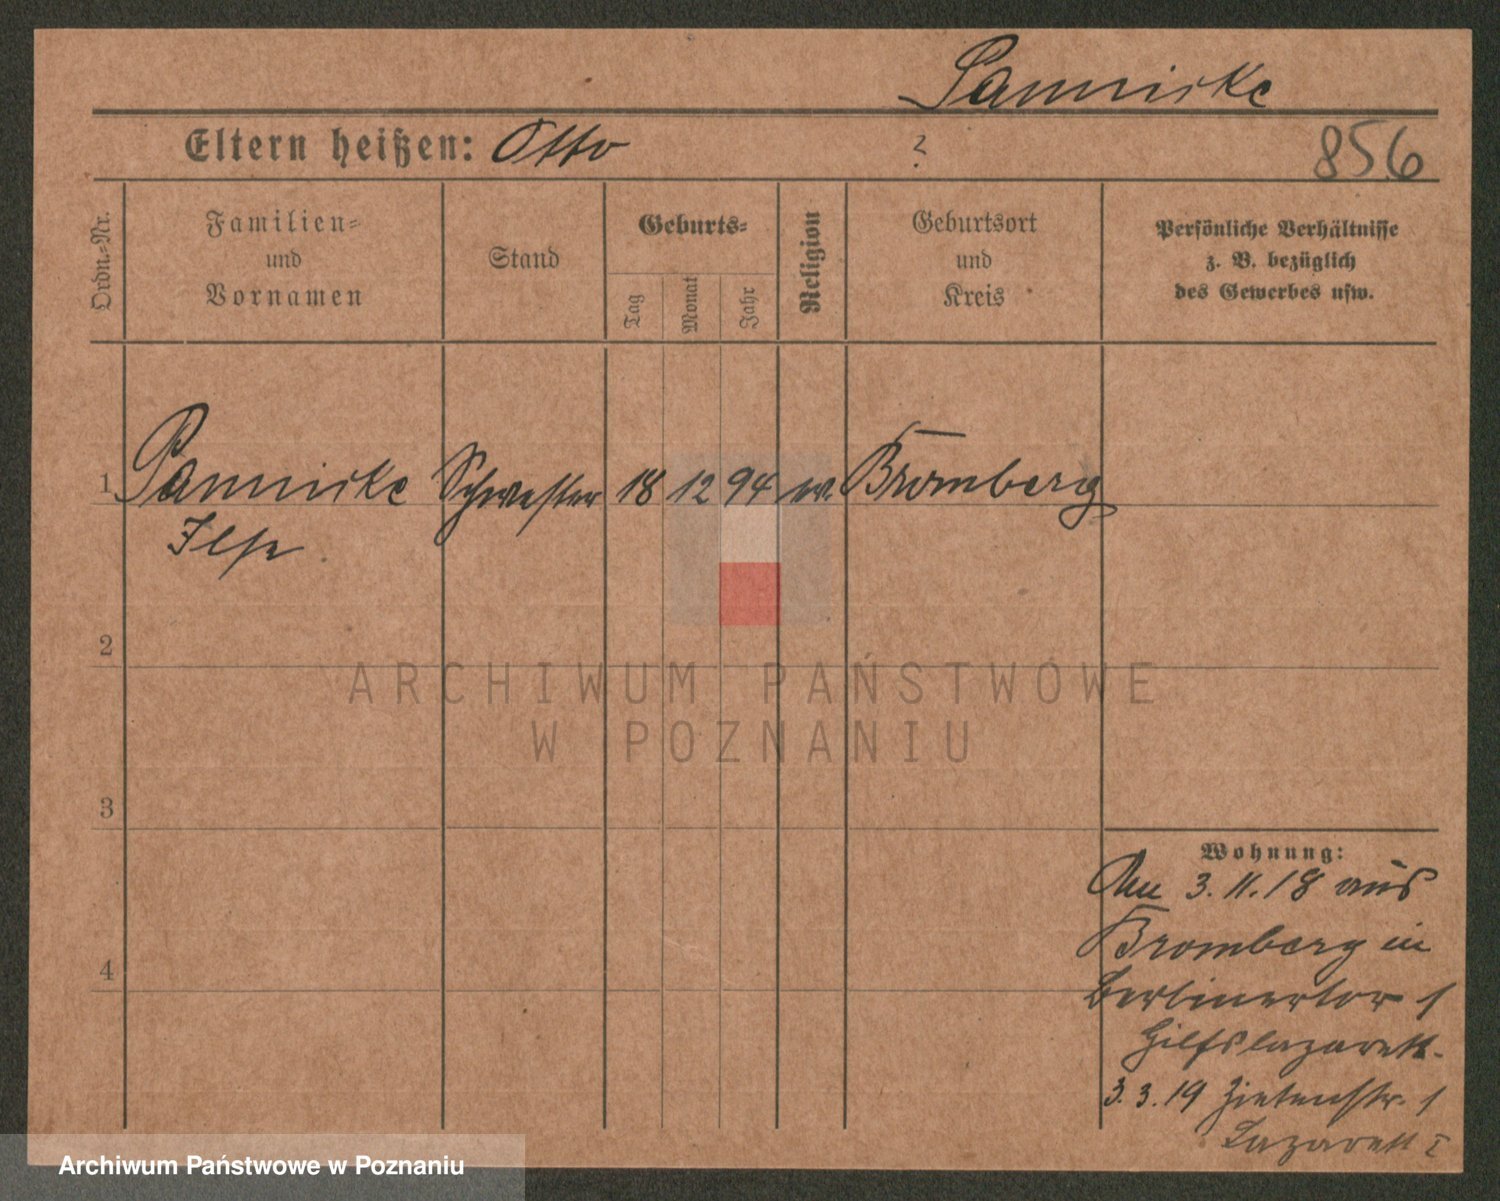 Pannicke
Eltern heißen: Otto ?
856
Ordn.-Nr.
Familien-
und
Vornamen
Stand
Geburts-
Tag
Monat
Jahr
Religion
Geburtsort
und
Kreis
Persönliche Verhältnisse
z. B. bezüglich
des Gewerbes usw.
1 Pannicke Schwester 18 12 94 ev. Bromberg
Ilse
2
3
4
Wohnung:
Am 3.11.18 aus
Bromberg in
Berlinertor 1
Hilfslazarett.
3.3.19 Zietenstr. 1
Lazarett I
ARCHIWUM PAŃSTWOWE
W POZNANIU
Archiwum Państwowe w Poznaniu